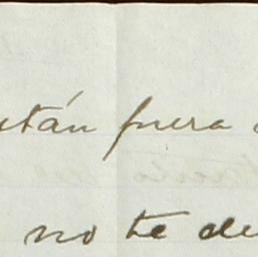 están fuera
no te de